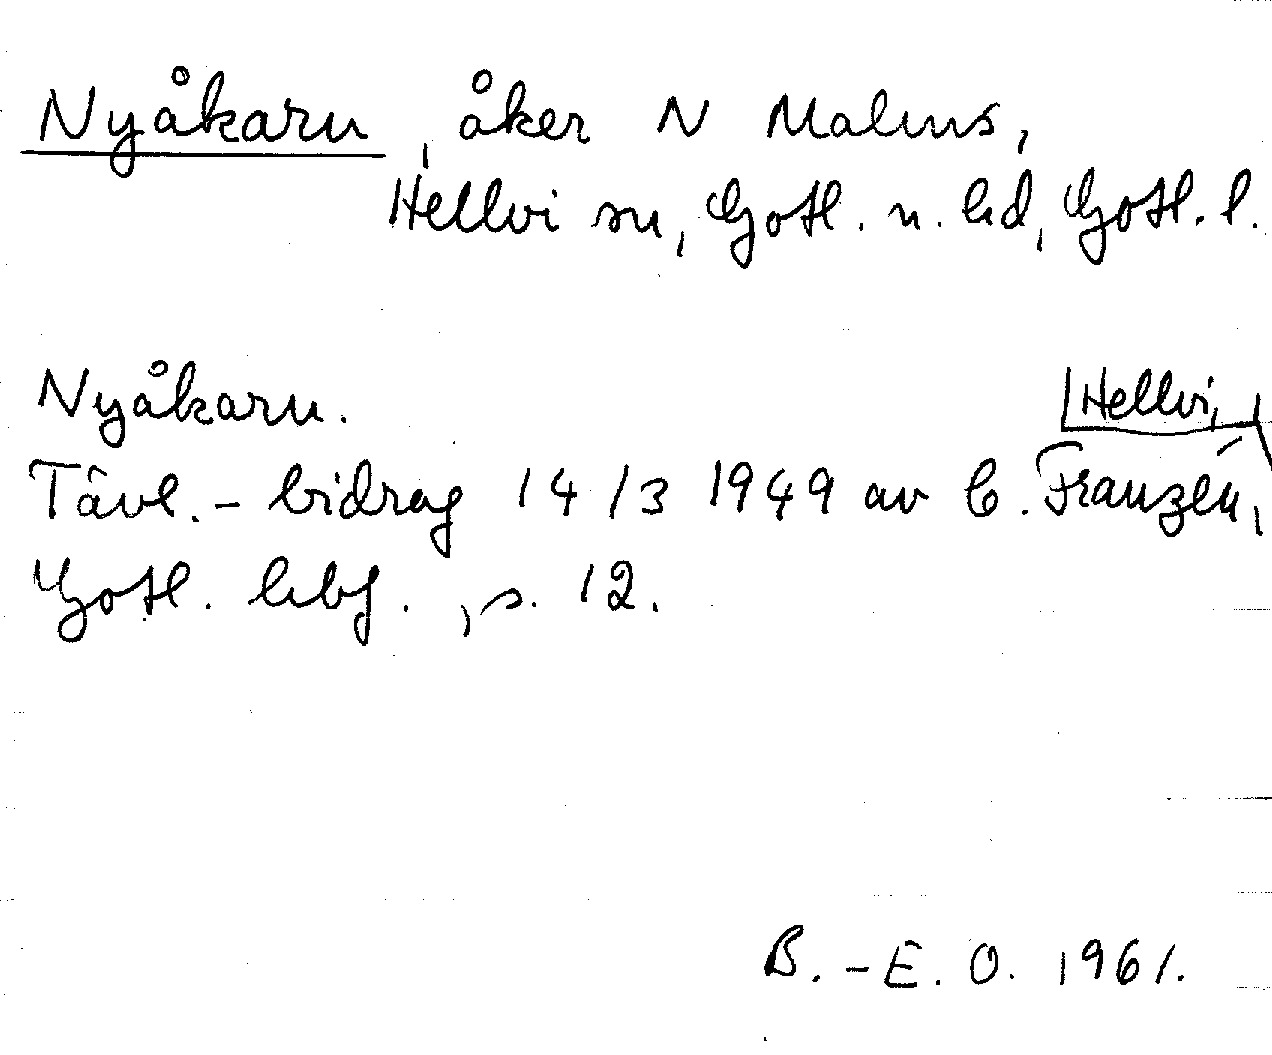 Nyåkaru, åker N Malms,
Hellvi sn, Gotl. n. hd, Gotl. l.
Nyåkaru.
Tävl.-bidrag 14/3 1949 av C. Franzén, Hellvi,
Gotl. hbf., s. 12.
B.-E. O. 1961.